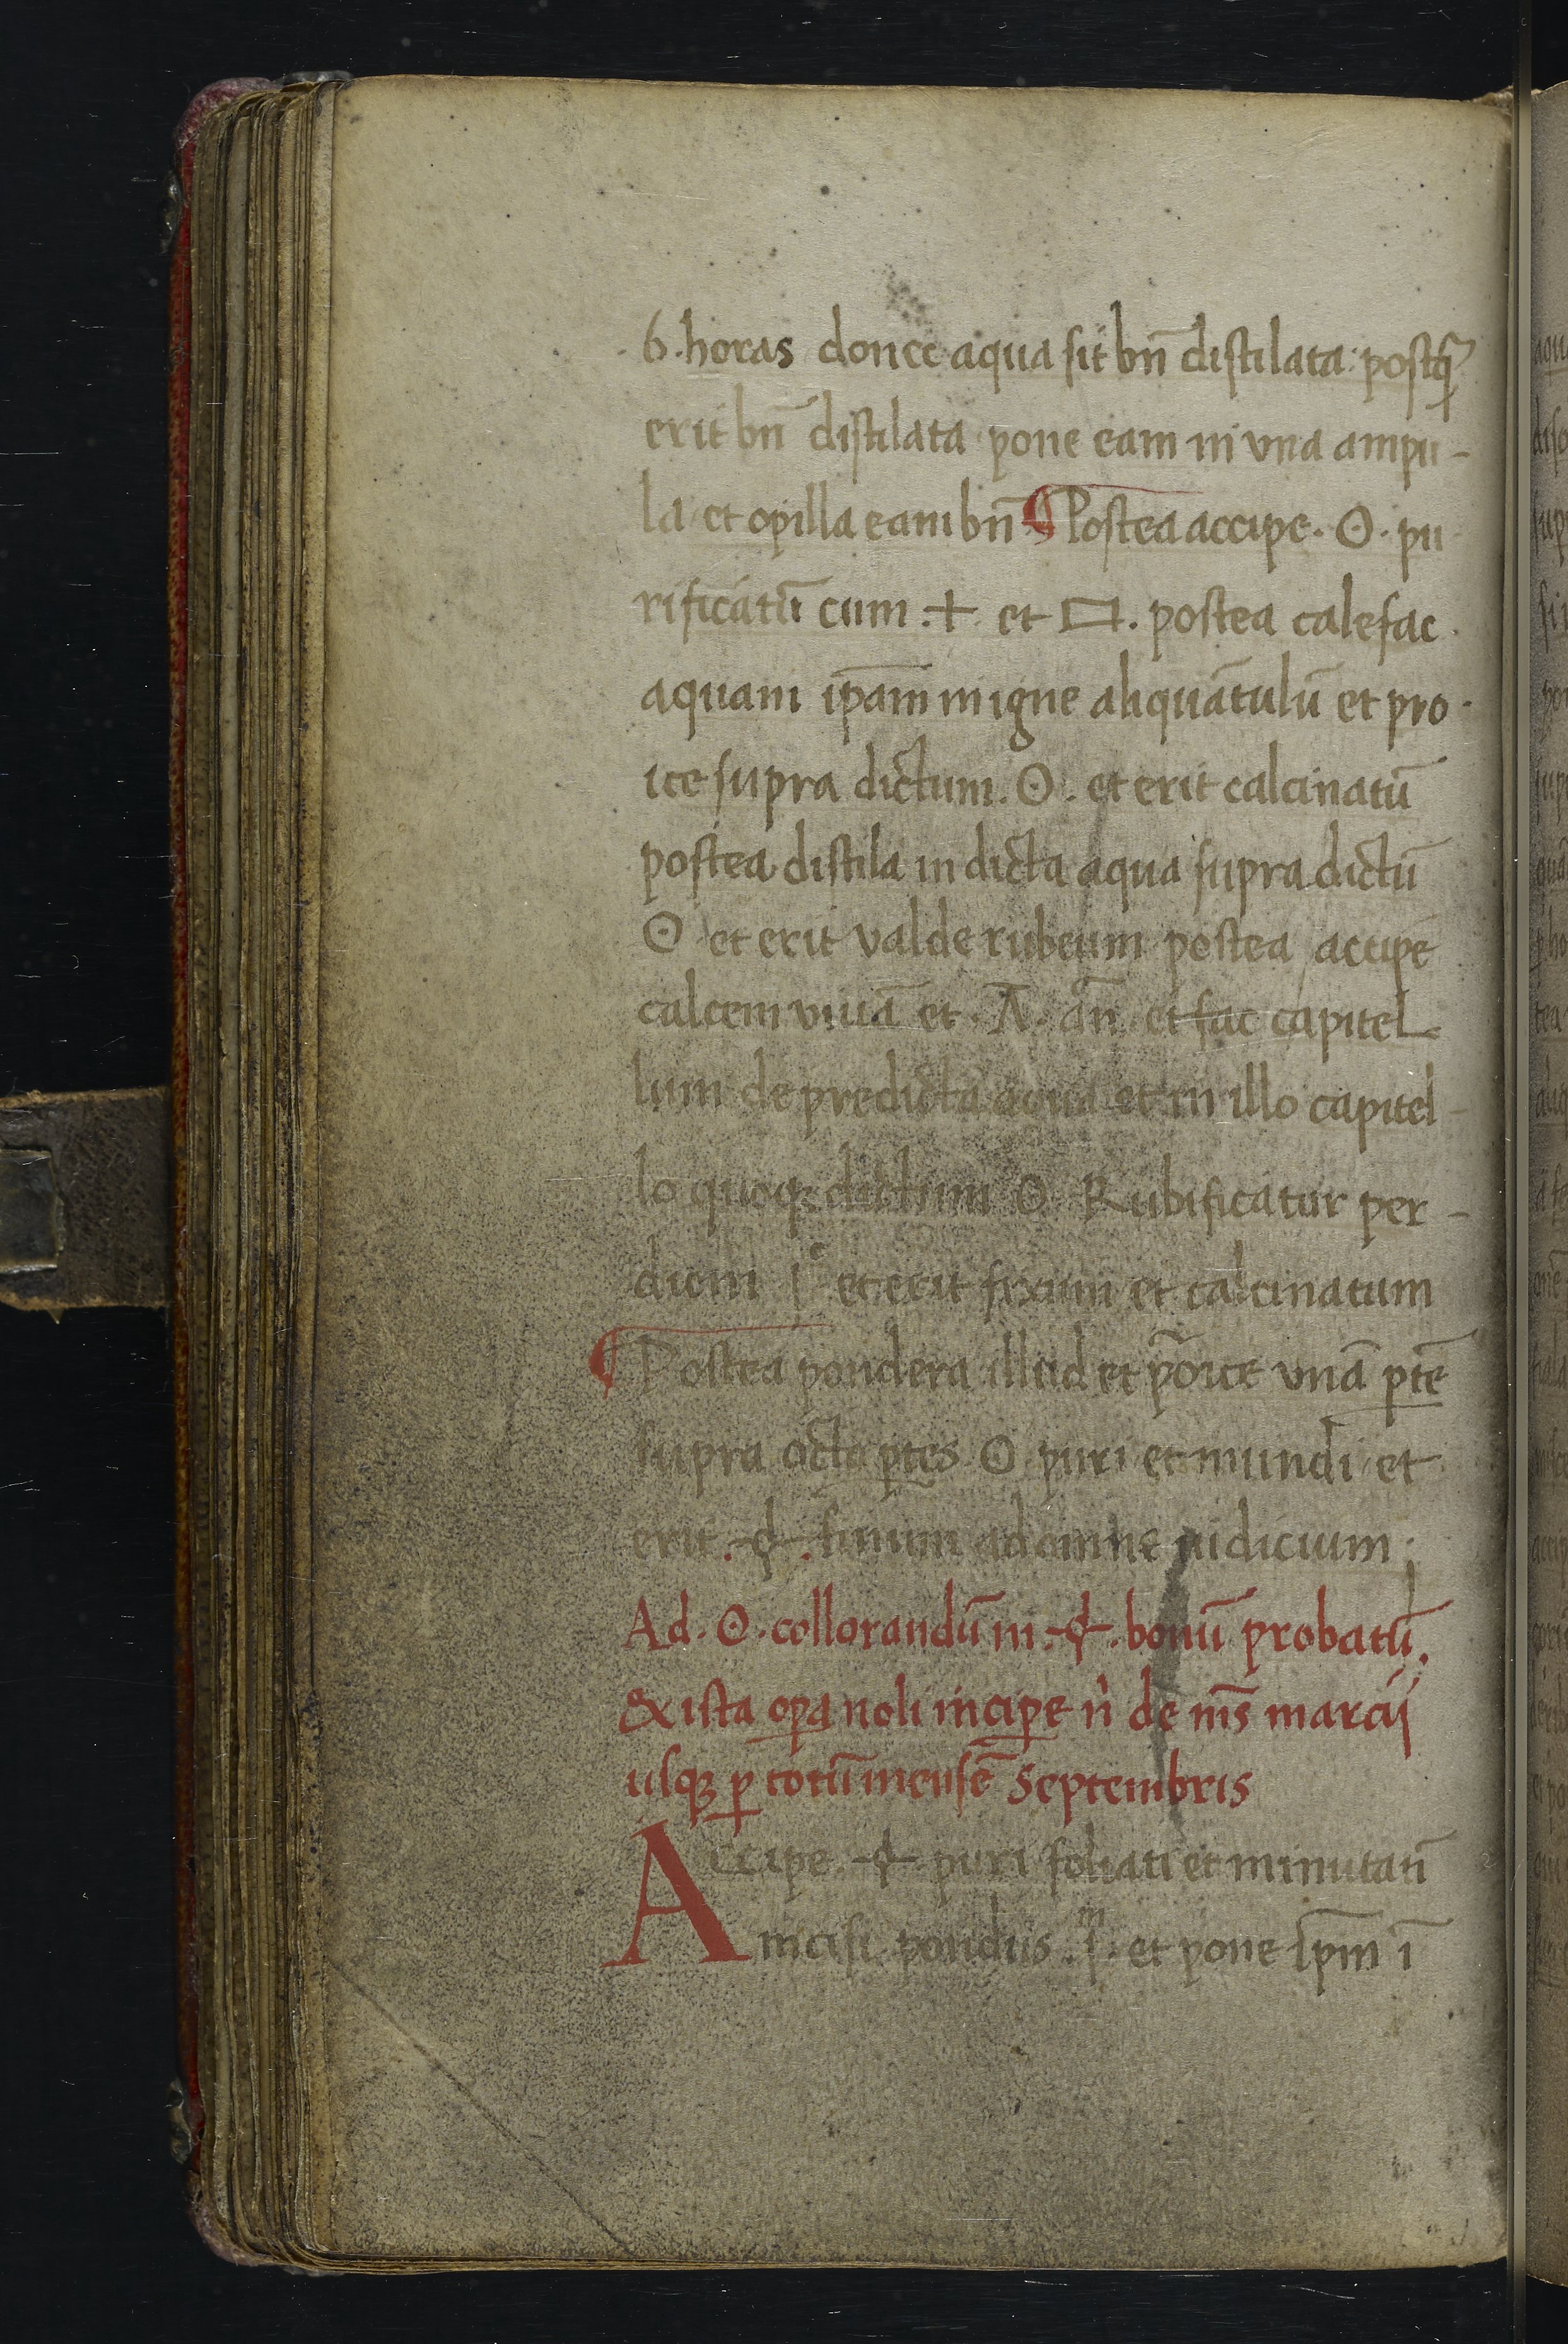 6. horas donec aqua sit bn̄ distilata: postq̄
erit bn̄ distilata pone eam in vna ampu-
la et opilla eam bn̄. ¶ Postea accipe. ☉. pu
rificatū cum .+. et □. postea calefac.
aquam ip̄am in igne aliquātulū et pro-
ice supra dictum. ☉. et erit calcinatū
postea distila in dicta aqua supra dictū
☉ et erit valde rubeum postea accipe
calcem viuā et . Ā . an̄. et fac capitel-
lum de predicta aqua et in illo capitel-
lo quoqꝫ dictum ☉ Rubificatur per-
diem et erit fixum et calcinatum
¶ Postea pondera illud et ꝓoice vnā ꝑtē
supra octo ꝑtes ☉ puri et mundi et
erit. finum ad omne iudicium;
Ad. ☉. collorandū in. bonū probatū.
Ex ista oꝑa noli inciꝑe n̄ de mēs marcij
usqꝫ ꝑ totū mensē Septembris
Accipe. puri foliati et minutati
incisi pondus et pone ip̄m ī